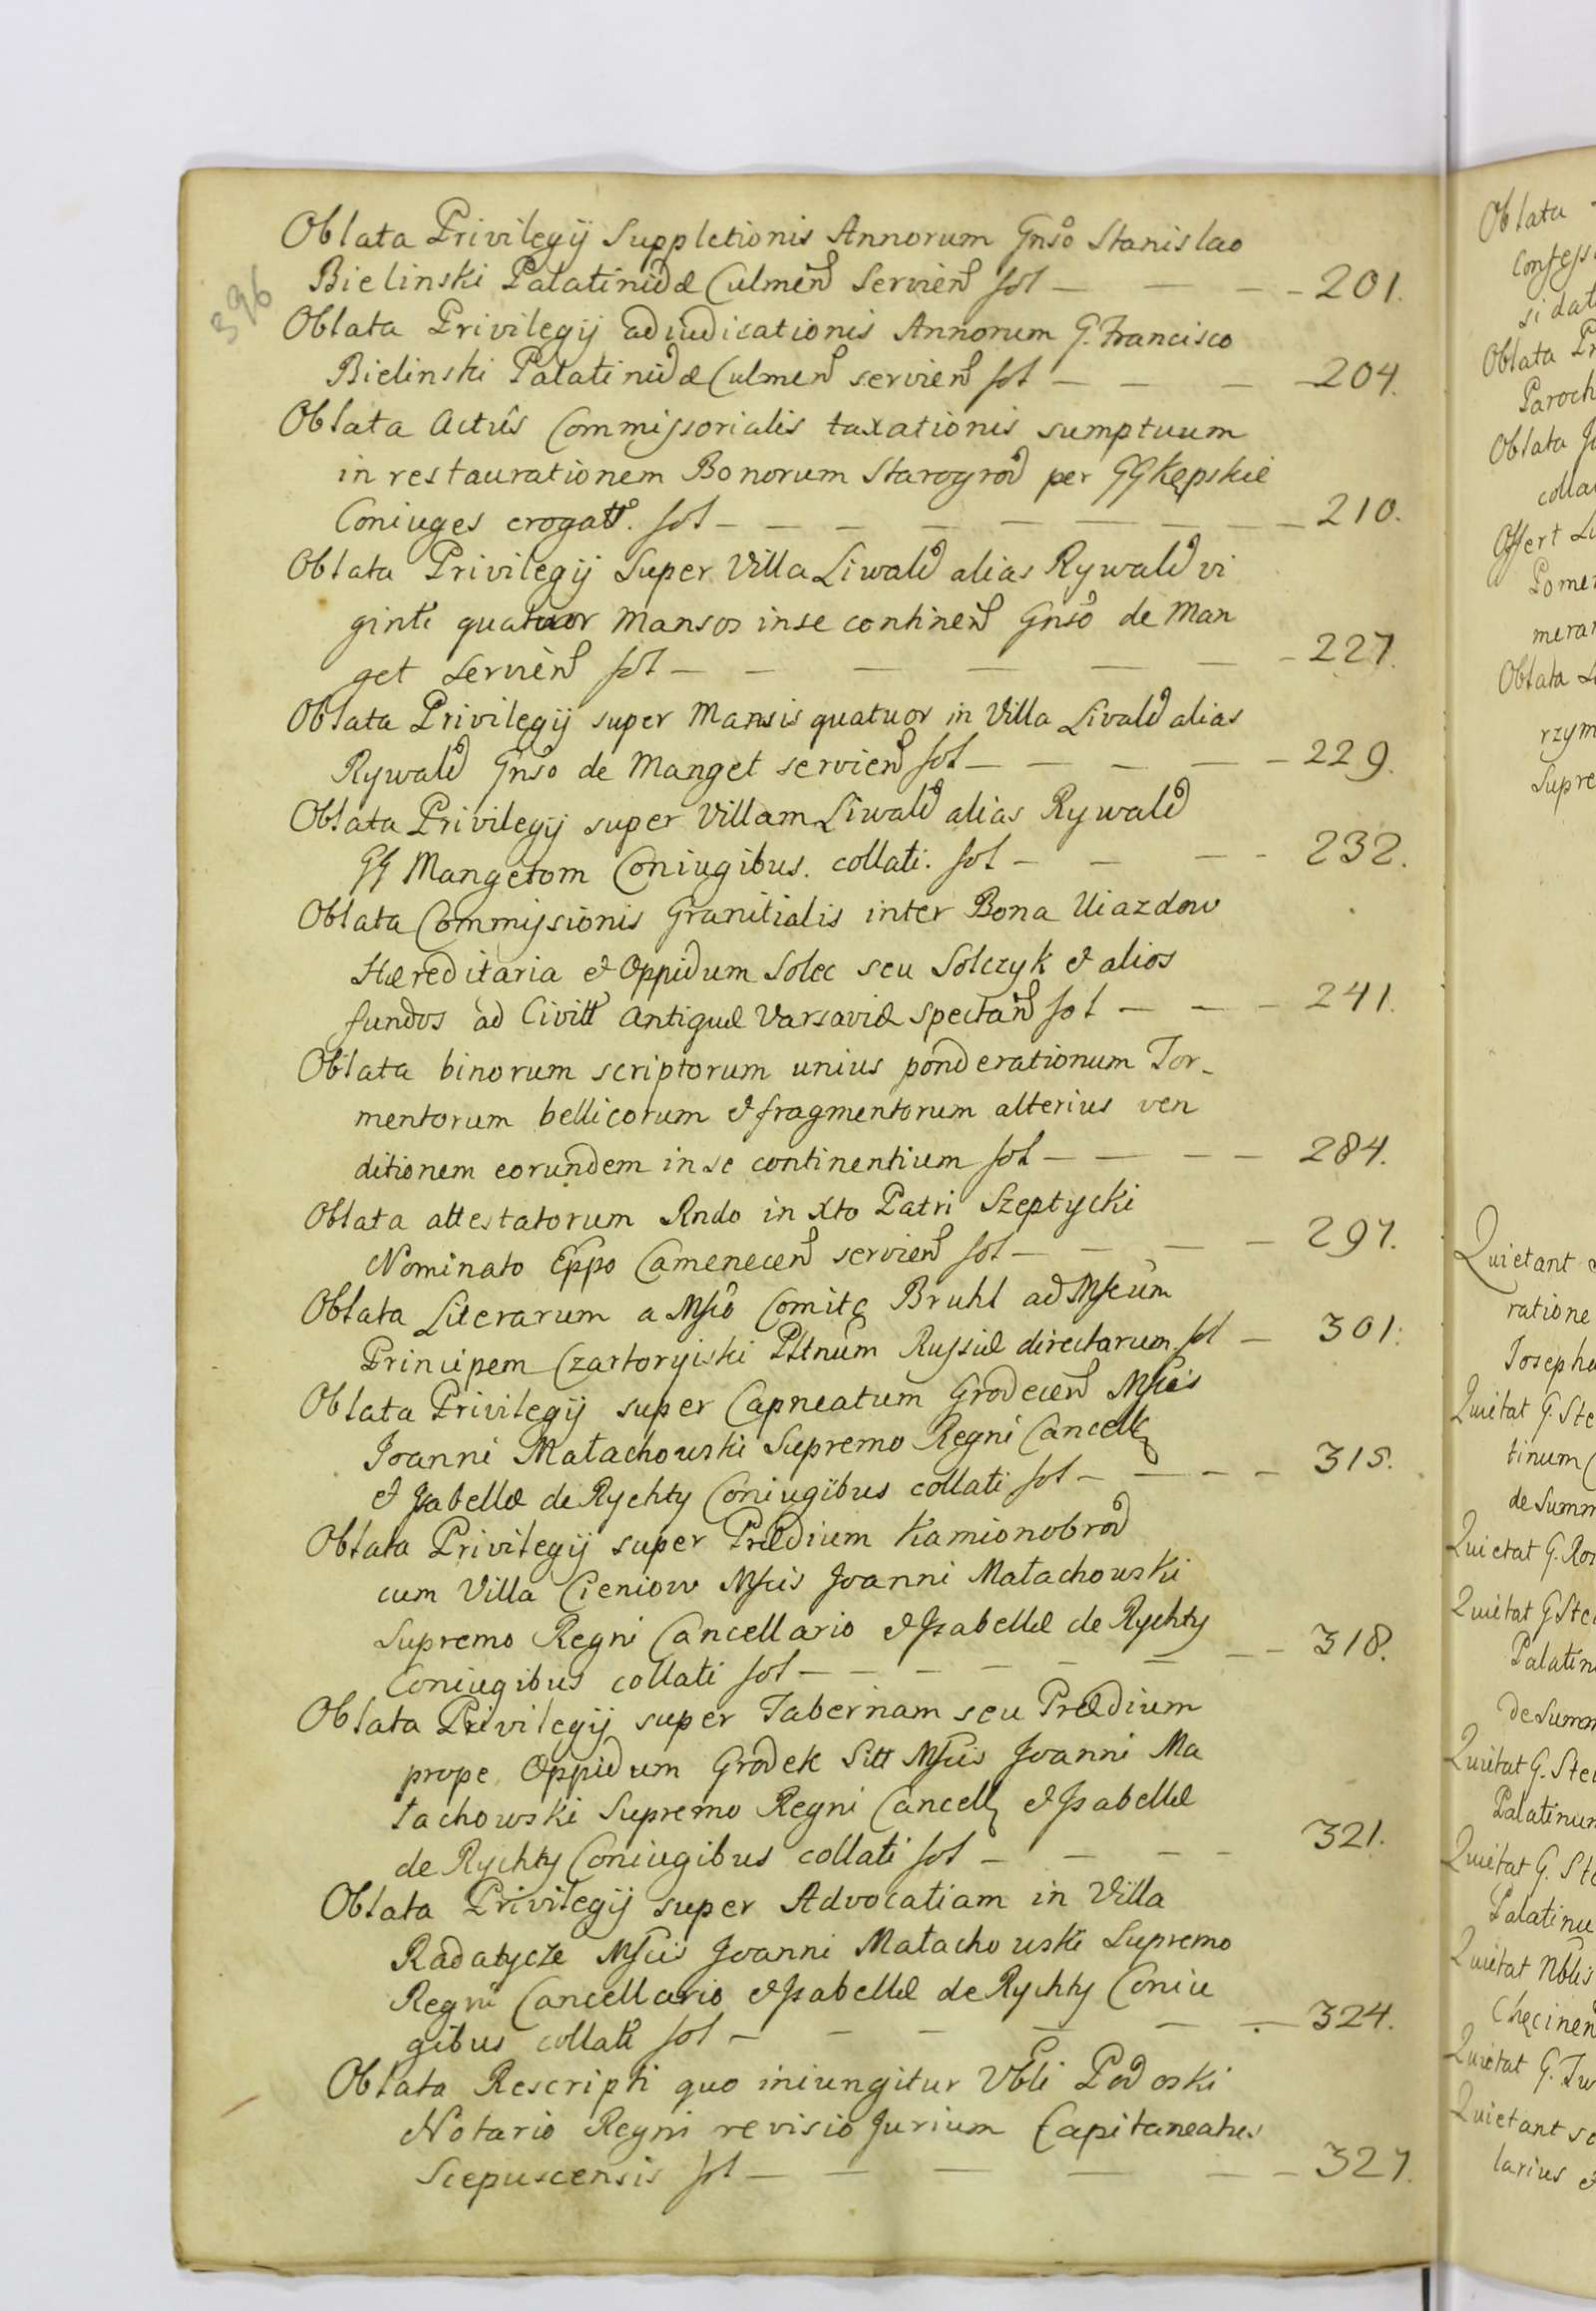 396
Oblata Privilegij Suppletionis Annorum Gnso Stanislao
Bielinski Palatinidæ Culmen Servien fol — — — — 201.
Oblata Privilegij adiudicationis Annorum G. Francisco
Bielinski Palatinidæ Culmen servien fol — — — — 204.
Oblata Actûs Commissorialis taxationis sumptuum
in restaurationem Bonorum Starogrod per GG Kępskie
Coniuges erogatt. fol — — — — — — — — 210.
Oblata Privilegij Super Villa Liwald alias Rywald vi
ginti quatuor Mansos in se continen Gnso de Man
get Servien fol — — — — — — — 227.
Oblata Privilegij super Mansis quatuor in Villa Livald alias
Rywald Gnso de Manget servien fol — — — — — 229.
Oblata Privilegij super Villam Liwald alias Rywald
GG Mangetom Coniugibus. collati. fol — — — — 232.
Oblata Commissionis Granitialis inter Bona Uiazdow
Hæreditaria et Oppidum Solec seu Solczyk et alios
fundos ad Civitt Antiquæ Varsaviæ Spectan fol — — — 241.
Oblata binorum scriptorum unius ponderationum Tor-
mentorum bellicorum et fragmentorum alterius ven
ditionem eorundem in se continentium fol — — — — 284.
Oblata attestatorum Rndo in Xto Patri Szeptycki
Nominato Eppo Camenecen servien fol — — — — 297.
Oblata Literarum a Msco Comite Bruhl ad Mscum
Principem Czartoryiski Pltnum Russiæ directarum fol — 301.
Oblata Privilegij super Capneatum Grodecen Mscis
Joanni Małachowski Supremo Regni Cancell
et Isabellæ de Rychty Coniugibus collati fol — — — — 315.
Oblata Privilegij super Prædium Kamionobrod
cum Villa Cieniow Mscis Joanni Małachowski
Supremo Regni Cancellario et Isabellæ de Rychty
Coniugibus collati fol — — — — — — — — 318.
Oblata Privilegij super Tabernam seu Prædium
prope Oppidum Grodek Sitt Mscis Joanni Ma
łachowski Supremo Regni Cancell et Isabellæ
de Rychty Coniugibus collati fol — — — — 321.
Oblata Privilegij super Advocatiam in Villa
Radatycze Mscis Joanni Małachowski Supremo
Regni Cancellario et Isabellæ de Rychty Coniu
gibus collati fol — — — — — — 324.
Oblata Rescripti quo iniungitur Vbli Podoski
Notario Regni revisio Jurium Capitaneatus
Scepuscensis fol — — — — — — 327.
Oblata
Oblata
Paroch
Oblata
colla
Offert
Pomer
Oblata
rzym
Supre
Quietant
ratione
Josepho
Quietat G. Ste
tinum
de Summ
Quietat G. Ros
Quietat G. Ste
Palatin
de Summ
Quietat G. Ste
Palatinum
Quietat G. Ste
Palatinu
Quietat Nbles
Chęcinen
Quietat G.
Quietant
larius et